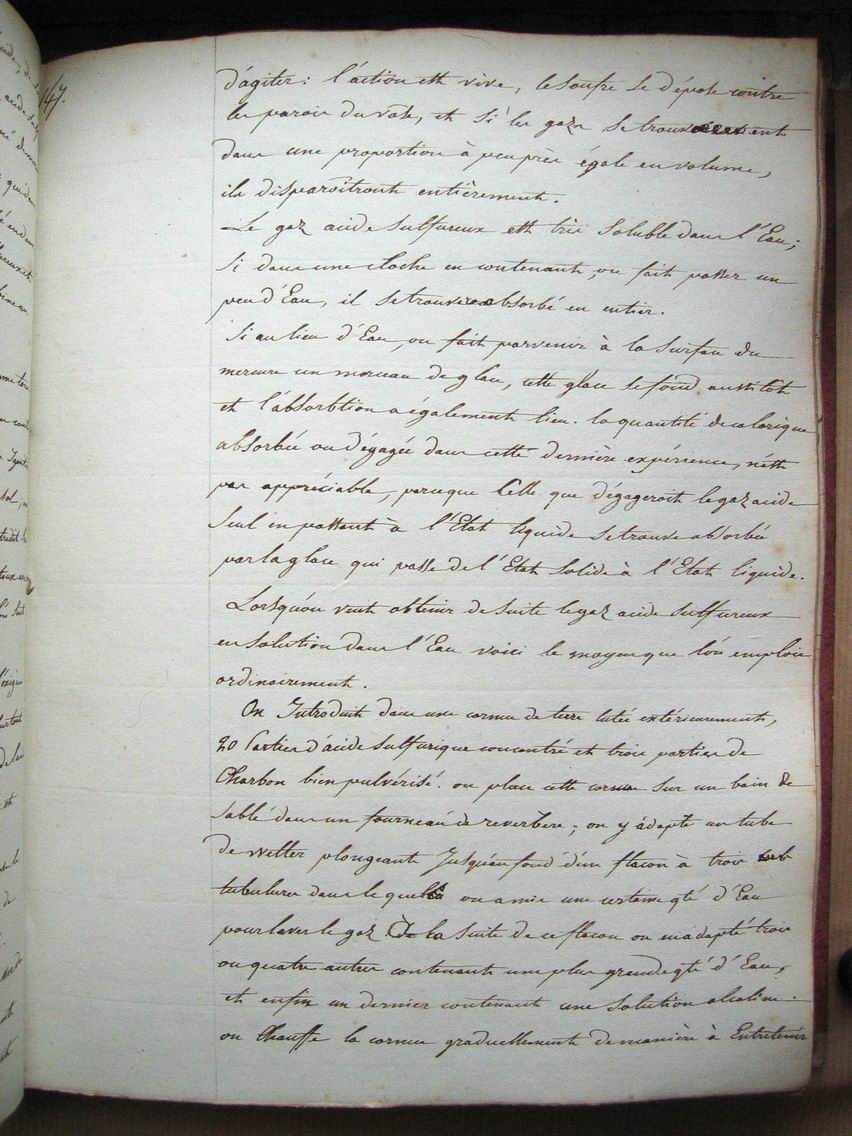 147.
d'agiter: l'action est vive, le soufre se dépose contre
les parois du vase, et si les gaz se trouvent
dans une proportion à peu près égale en volume,
ils disparoitront entièrement.
Le gaz acide sulfureux est très soluble dans l'Eau;
si dans une cloche en contenant, on fait passer un
peu d'Eau, il se trouve absorbé en entier.
Si au lieu d'Eau, on fait parvenir à la surface du
mercure un morceau de glace, cette glace se fond aussitôt
et l'absorbtion a également lieu. la quantité de calorique
absorbée ou dégagée dans cette dernière expérience, n'est
pas appréciable, parceque celle que dégageroit le gaz acide
seul en passant à l'Etat liquide se trouve absorbée
par la glace qui passe de l'Etat solide à l'Etat liquide.
Lorsqu'on veut obtenir de suite le gaz acide sulfureux
en solution dans l'Eau voici le moyen que l'on emploie
ordinairement.
On Introduit dans une cornue de terre lutée extérieurement,
20 Parties d'acide sulfurique concentré et trois parties de
Charbon bien pulvérisé. on place cette cornue sur un bain de
sable dans un fourneau de reverbere; on y adapte un tube
de Welter plongeant Jusqu'au fond d'un flacon à trois
tubulures dans lequel on a mis une certaine qté d'Eau
pour laver le gaz. à la suite de ce flacon on en adapte trois
ou quatre autres contenant une plus grande qté d'Eau,
et enfin un dernier contenant une solution alcaline.
on Chauffe la cornue graduellement de manière à Entretenir